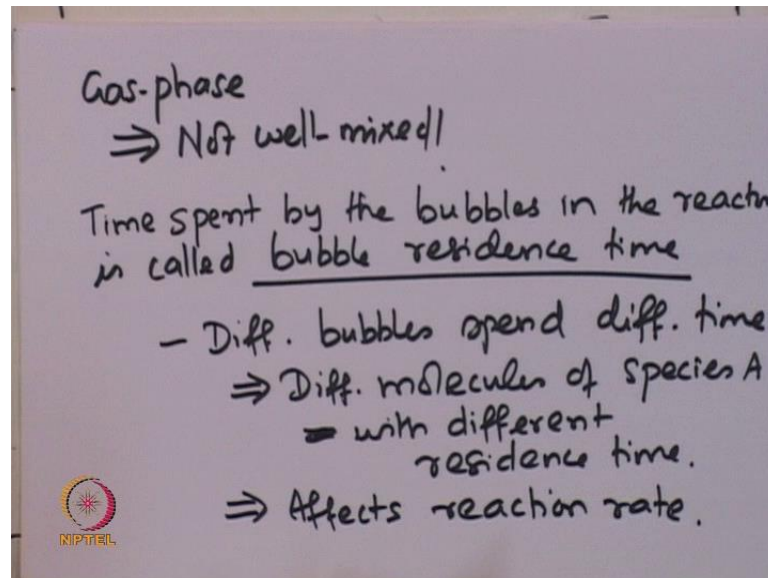 Gas-phase
⇒ Not well-mixed!
Time spent by the bubbles in the reactn
is called bubble residence time
- Diff. bubbles spend diff. time
⇒ Diff. molecules of species A
- with different
residence time.
⇒ Affects reaction rate.
NPTEL